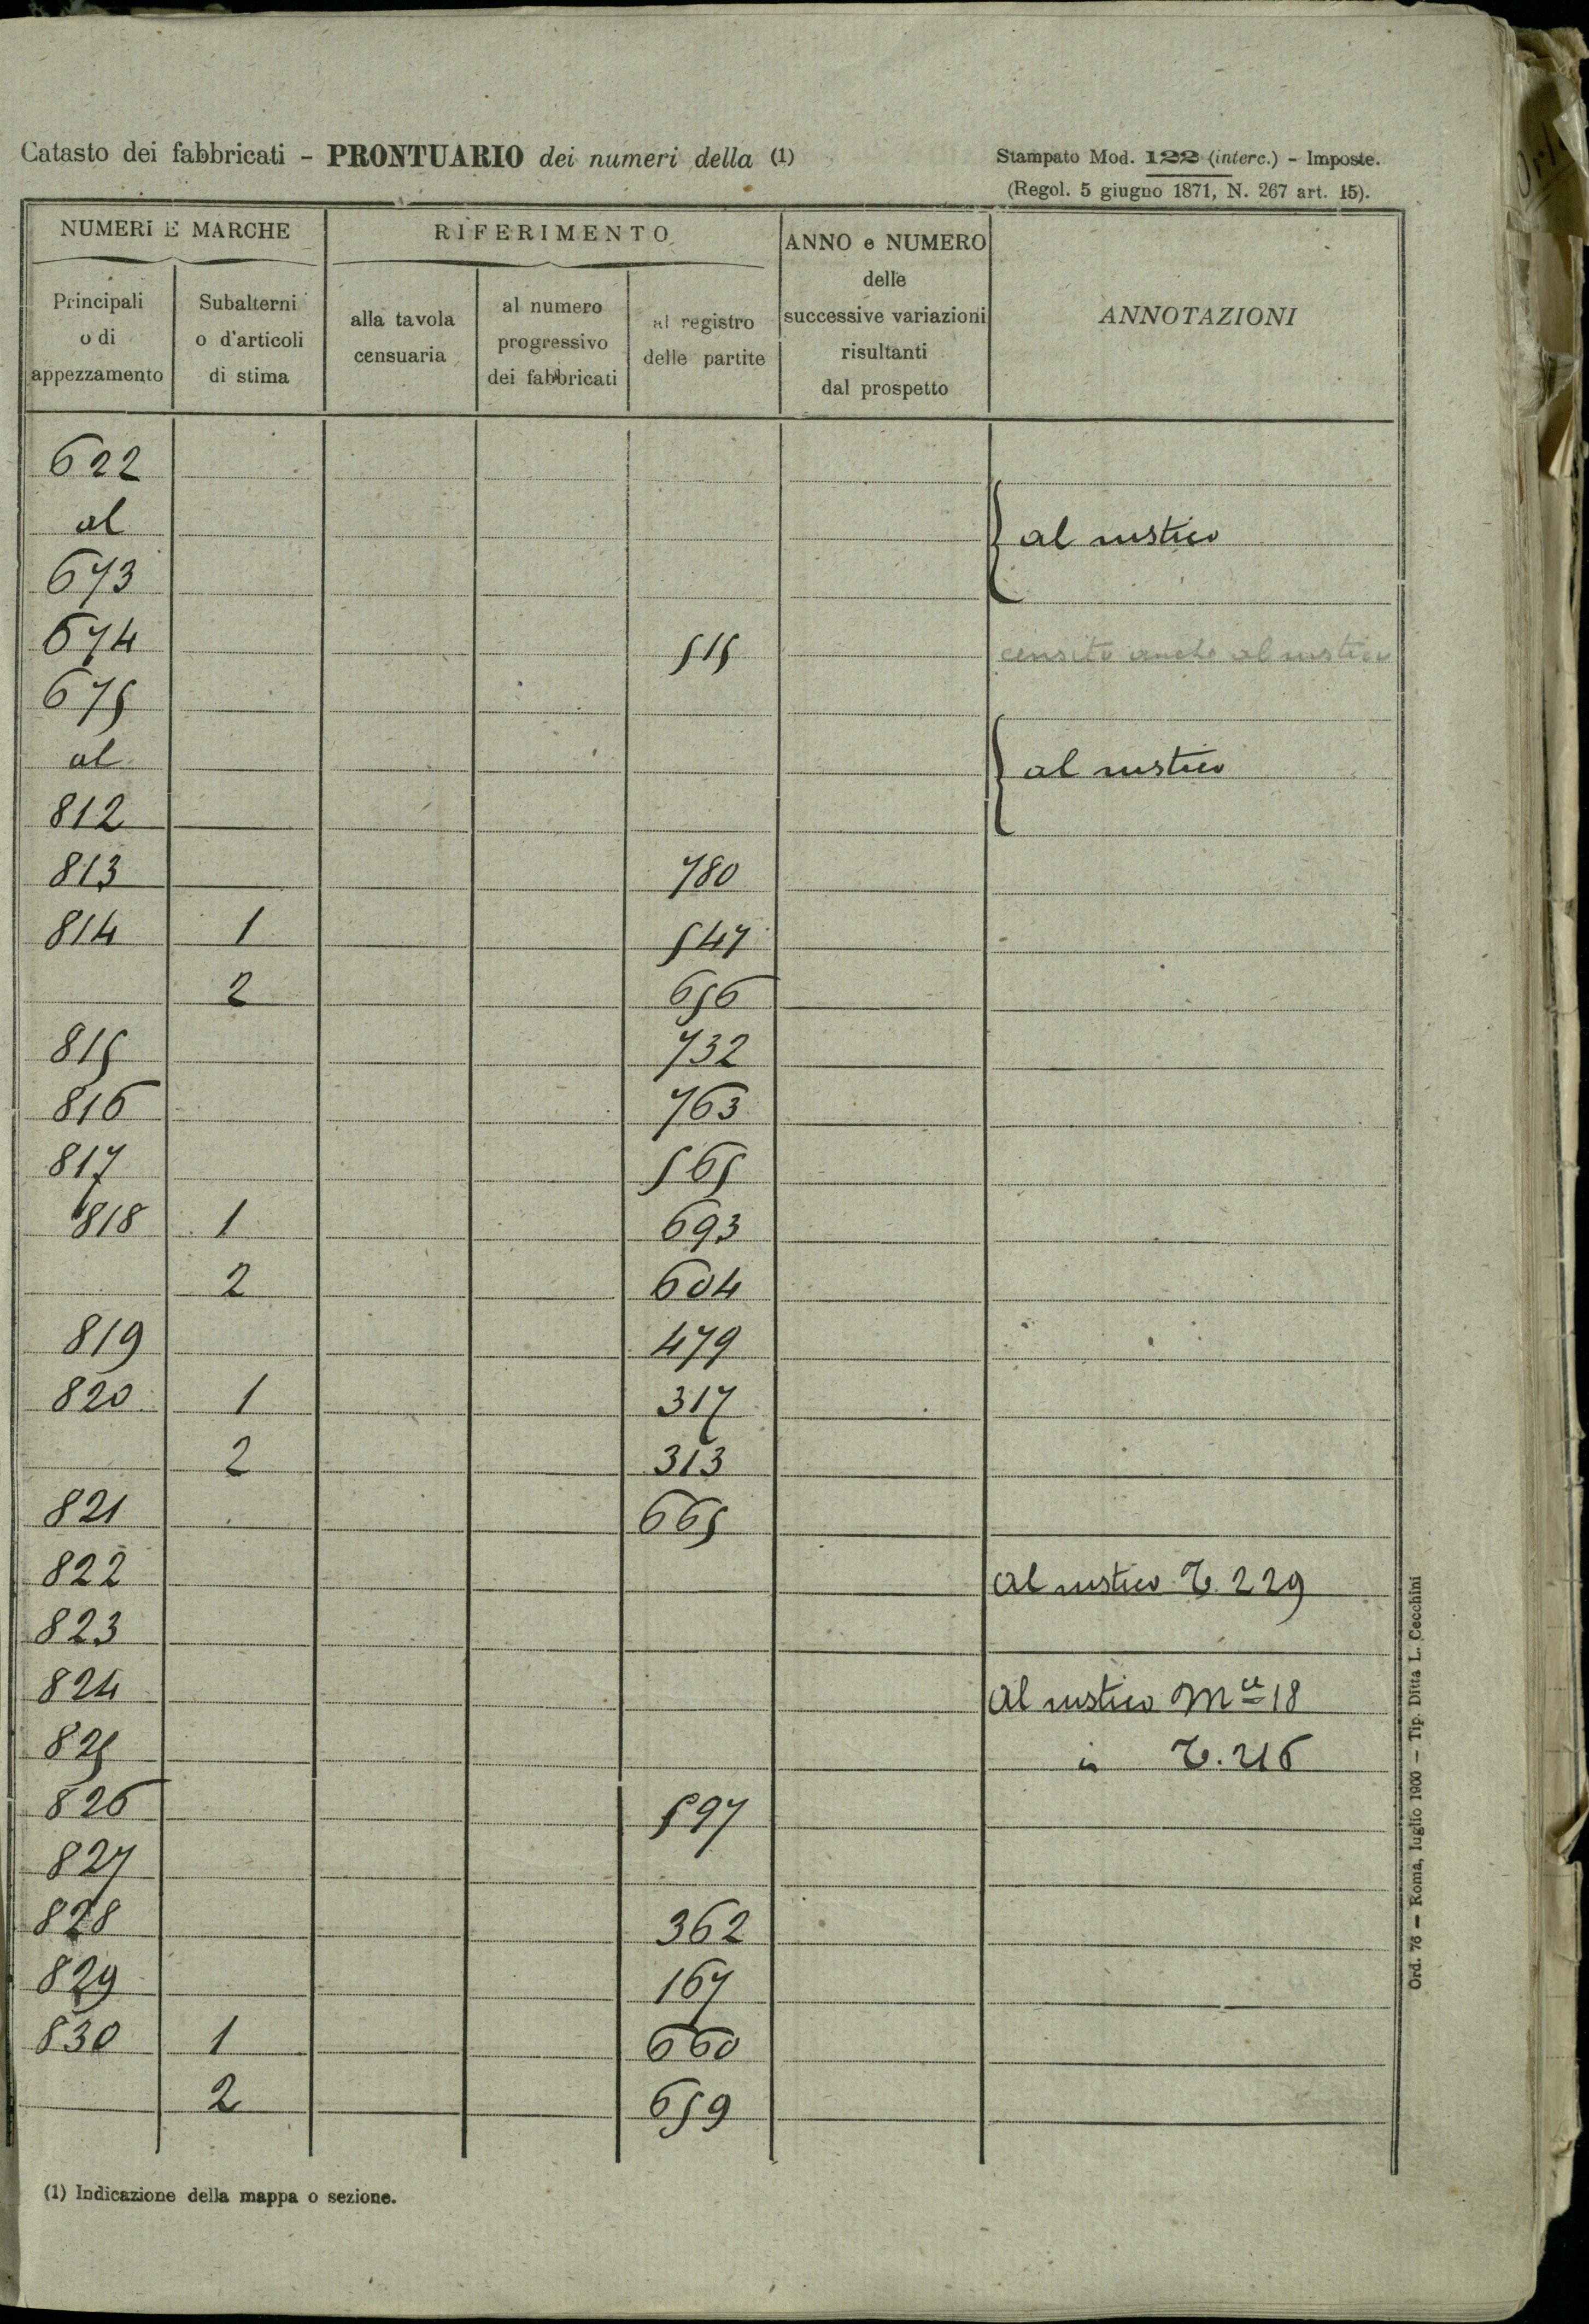 Catasto dei fabbricati - PRONTUARIO dei numeri della (1)
Stampato Mod. 122 (interc.) - Imposte.
(Regol. 5 giugno 1871, N. 267 art. 15).
NUMERI E MARCHE
RIFERIMENTO
ANNO e NUMERO
delle
successive variazioni
risultanti
dal prospetto
ANNOTAZIONI
Principali
o di
appezzamento
Subalterni
o d'articoli
di stima
alla tavola
censuaria
al numero
progressivo
dei fabbricati
al registro
delle partite
622
al al rustico
673
674 515 censito anche al rustico
675
al al rustico
812
813 780
814 1 547
2 656
815 732
816 763
817 565
818 1 693
2 604
819 479
820 1 317
2 313
821 665
822 al rustico T. 229
823
824 al rustico M 18
825 T. 216
826 597
827
828 362
829 167
830 1 660
2 659
(1) Indicazione della mappa o sezione.
Ord. 76 — Roma, luglio 1900 — Tip. Ditta L. Cecchini